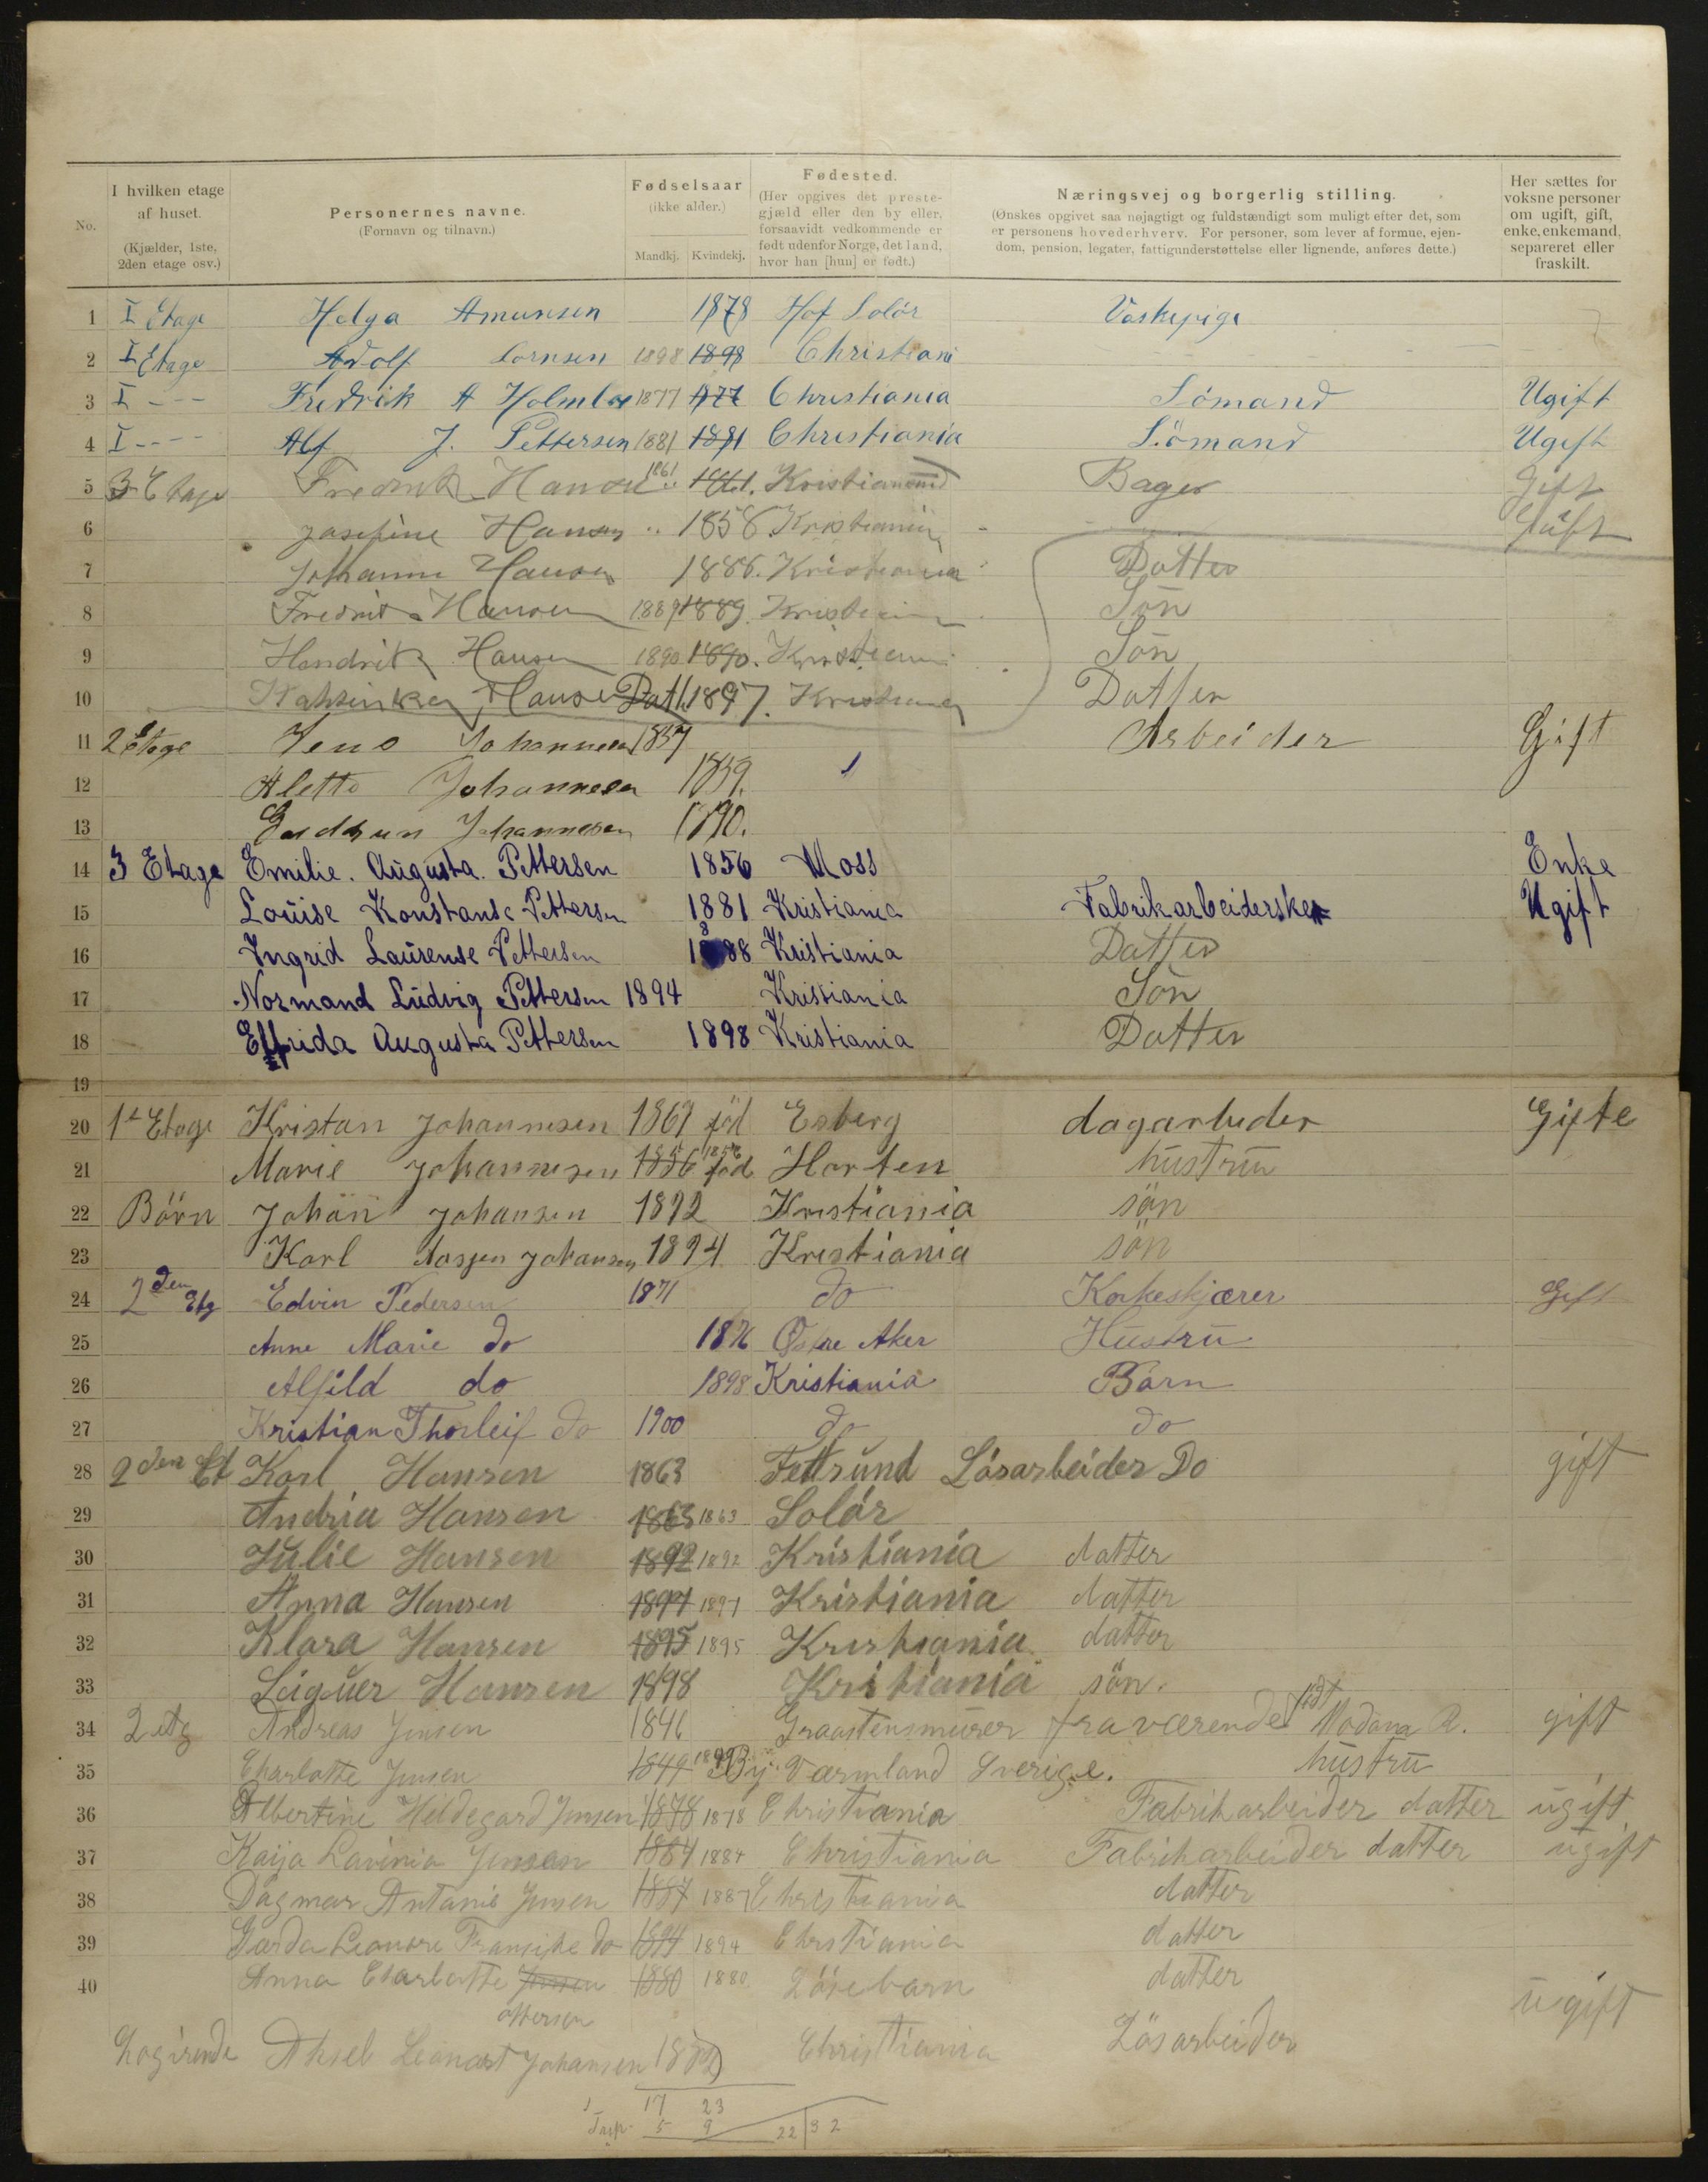 No.
I hvilken etage af huset. (Kjælder, 1ste, 2den etage osv.)
Personernes navne. (Fornavn og tilnavn.)
Fødselsaar (ikke alder.) Mandkj. Kvindekj.
Fødested. (Her opgives det prestegjæld eller den by eller, forsaavidt vedkommende er født udenfor Norge, det land, hvor han [hun] er født.)
Næringsvej og borgerlig stilling. (Ønskes opgivet saa nøjagtigt og fuldstændigt som muligt efter det, som er personens hovederhverv. For personer, som lever af formue, ejendom, pension, legater, fattigunderstøttelse eller lignende, anføres dette.)
Her sættes for voksne personer om ugift, gift, enke, enkemand, separeret eller fraskilt.
1 I Etage Helga Amunsen 1878 Hof Solör Vaskepige
2 I Etage Adolf Lornsen 1898 1898 Christiani
3 I --- Fredrik A Holmboe 1877 1877 Christiania Sömand Ugift
4 I ---- Alf J. Pettersen 1881 1881 Christiania Sömand Ugift
5 3 Etage Fredrik Hansen 1861 1861. Kristiansund Bager Gift
6 Josefine Hansen 1858 Kristiania Gift
7 Johanne Hansen 1886. Kristiania Datter
8 Fredrik Hansen 1889 1889. Kristiania Sön
9 Hendrik Hansen 1890 1890. Kristiania Sön
10 Kathinka Hansen Datt 1897. Kristiania Datter
11 2 Etage Jens Johannesen 1857 Arbeider Gift
12 Alette Johannesen 1859.
13 Gudhrun Johannesen 1890.
14 3 Etage Emilie. Augusta. Pettersen 1856 Moss Enke
15 Louise Konstanse Pettersen 1881 Kristiania Fabrikarbeiderske Ugift
16 Ingrid Laurense Pettersen 1888 Kristiania Datter
17 Normand Ludvig Pettersen 1894 Kristiania Sön
18 Elfrida Augusta Pettersen 1898 Kristiania Datter
19
20 1ste Etage Kristan Johannesen 1869 föd Esberg dagarbeder Gifte
21 Marie Johannesen 1856 1856 föd Horten hustru
22 Börn Johan Johansen 1892 Kristiania sön
23 Karl Johansen 1894 Kristiania sön
24 2den Etg Edvin Pedersen 1871 do Korkeskjærer Gift
25 Anne Marie do 1876 Østre Aker Hustru
26 Alfild do 1898 Kristiania Barn
27 Kristian Thorleif do 1900 do do
28 2den Et Karl Hansen 1863 Fettsund Lösarbeider Do gift
29 Andria Hansen 1863 1863 Solör
30 Julie Hansen 1892 1892 Kristiania datter
31 Anna Hansen 1894 1894 Kristiania datter
32 Klara Hansen 1895 1895 Kristiania datter
33 Hansen 1898 Kristiania sön.
34 2 etg Andreas Jensen 1846 Graastensmurer fraværende födt gift
35 Charlotte Jensen 1849 1849 By. Værmland Sverige. hustru
36 Albertine Hildegard Jensen 1878 1878 Christiania Fabrikarbeider datter ugift
37 Kaija Lavinia Jensen 1884 1884 Christiania Fabrikarbeider datter ugift
38 Dagmar Antanie Jensen 1887 1887 Christiania datter
39 Garda Leonore Fransiske do 1894 1894 Christiania datter
40 Anna Charlotte Jensen 1880 1880 Lösebarn datter
Ottersen
Logirende Aksel Leonart Johansen 1882 Christiania Lösarbeider ugift
17 23
5 9 22|32